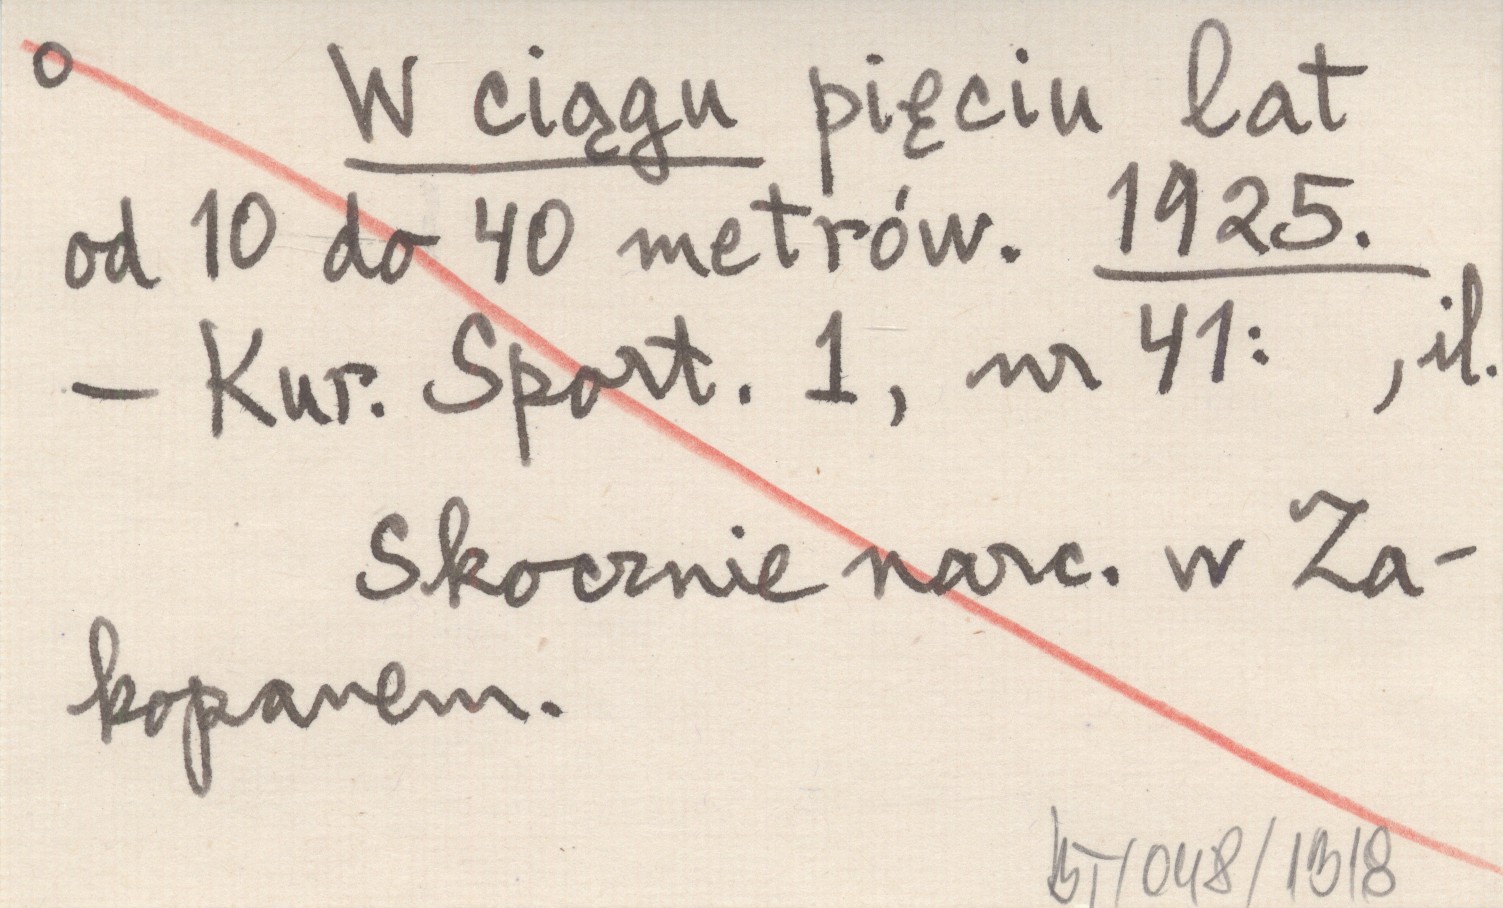 o W ciągu pięciu lat
od 10 do 40 metrów. 1925.
– Kur. Sport. 1, nr 41: , il.
Skocznie narc. w Za-
kopanem.
/048/1318